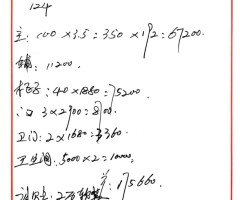 124
主: 600×3.5=350×192=67200.
辅: 11200.
柜子: 40×1880=75200
门 3×2900=8700.
卫门: 2×1680=3360
卫生间: 5000×2=10000.
175660.